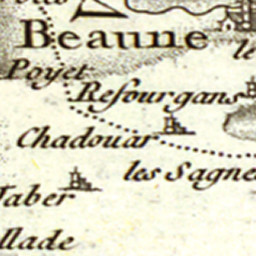 Beaune
le
Poyet
Resourgans
Chadouar
les Sagne
Taber
llade